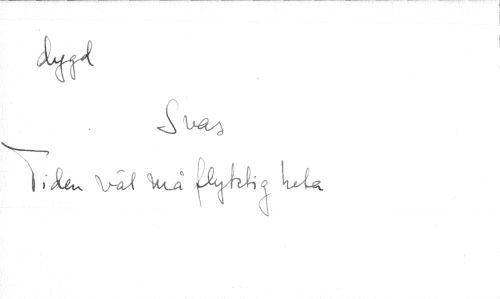 dygd
Svar
Tiden väl må flyktig heta